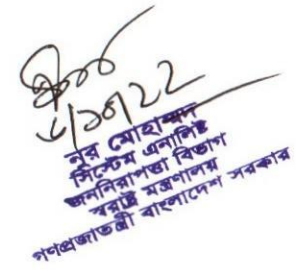 নূর মোহাম্মদ
সিস্টেম এনালিষ্ট
জননিরাপত্তা বিভাগ
স্বরাষ্ট্র মন্ত্রণালয়
গণপ্রজাতন্ত্রী বাংলাদেশ সরকার